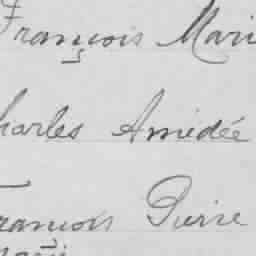 François Mari
harles Amédée
rancois Pierre